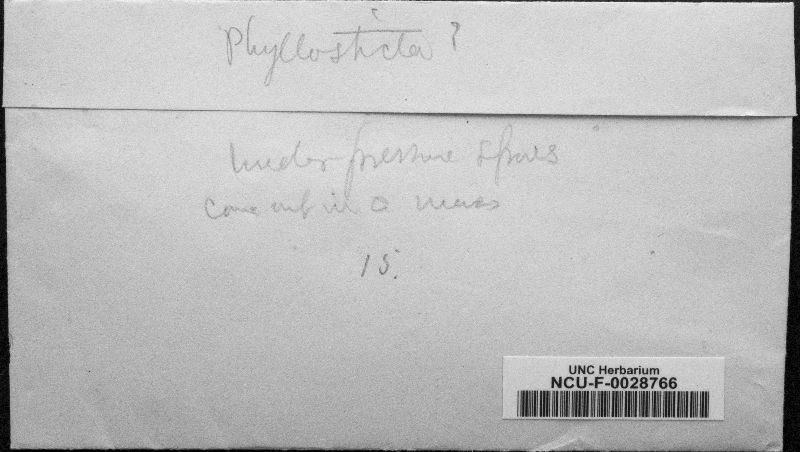 Phyllosticta ?
Under pressure spores
come out in a mass
15.
UNC Herbarium
NCU-F-0028766